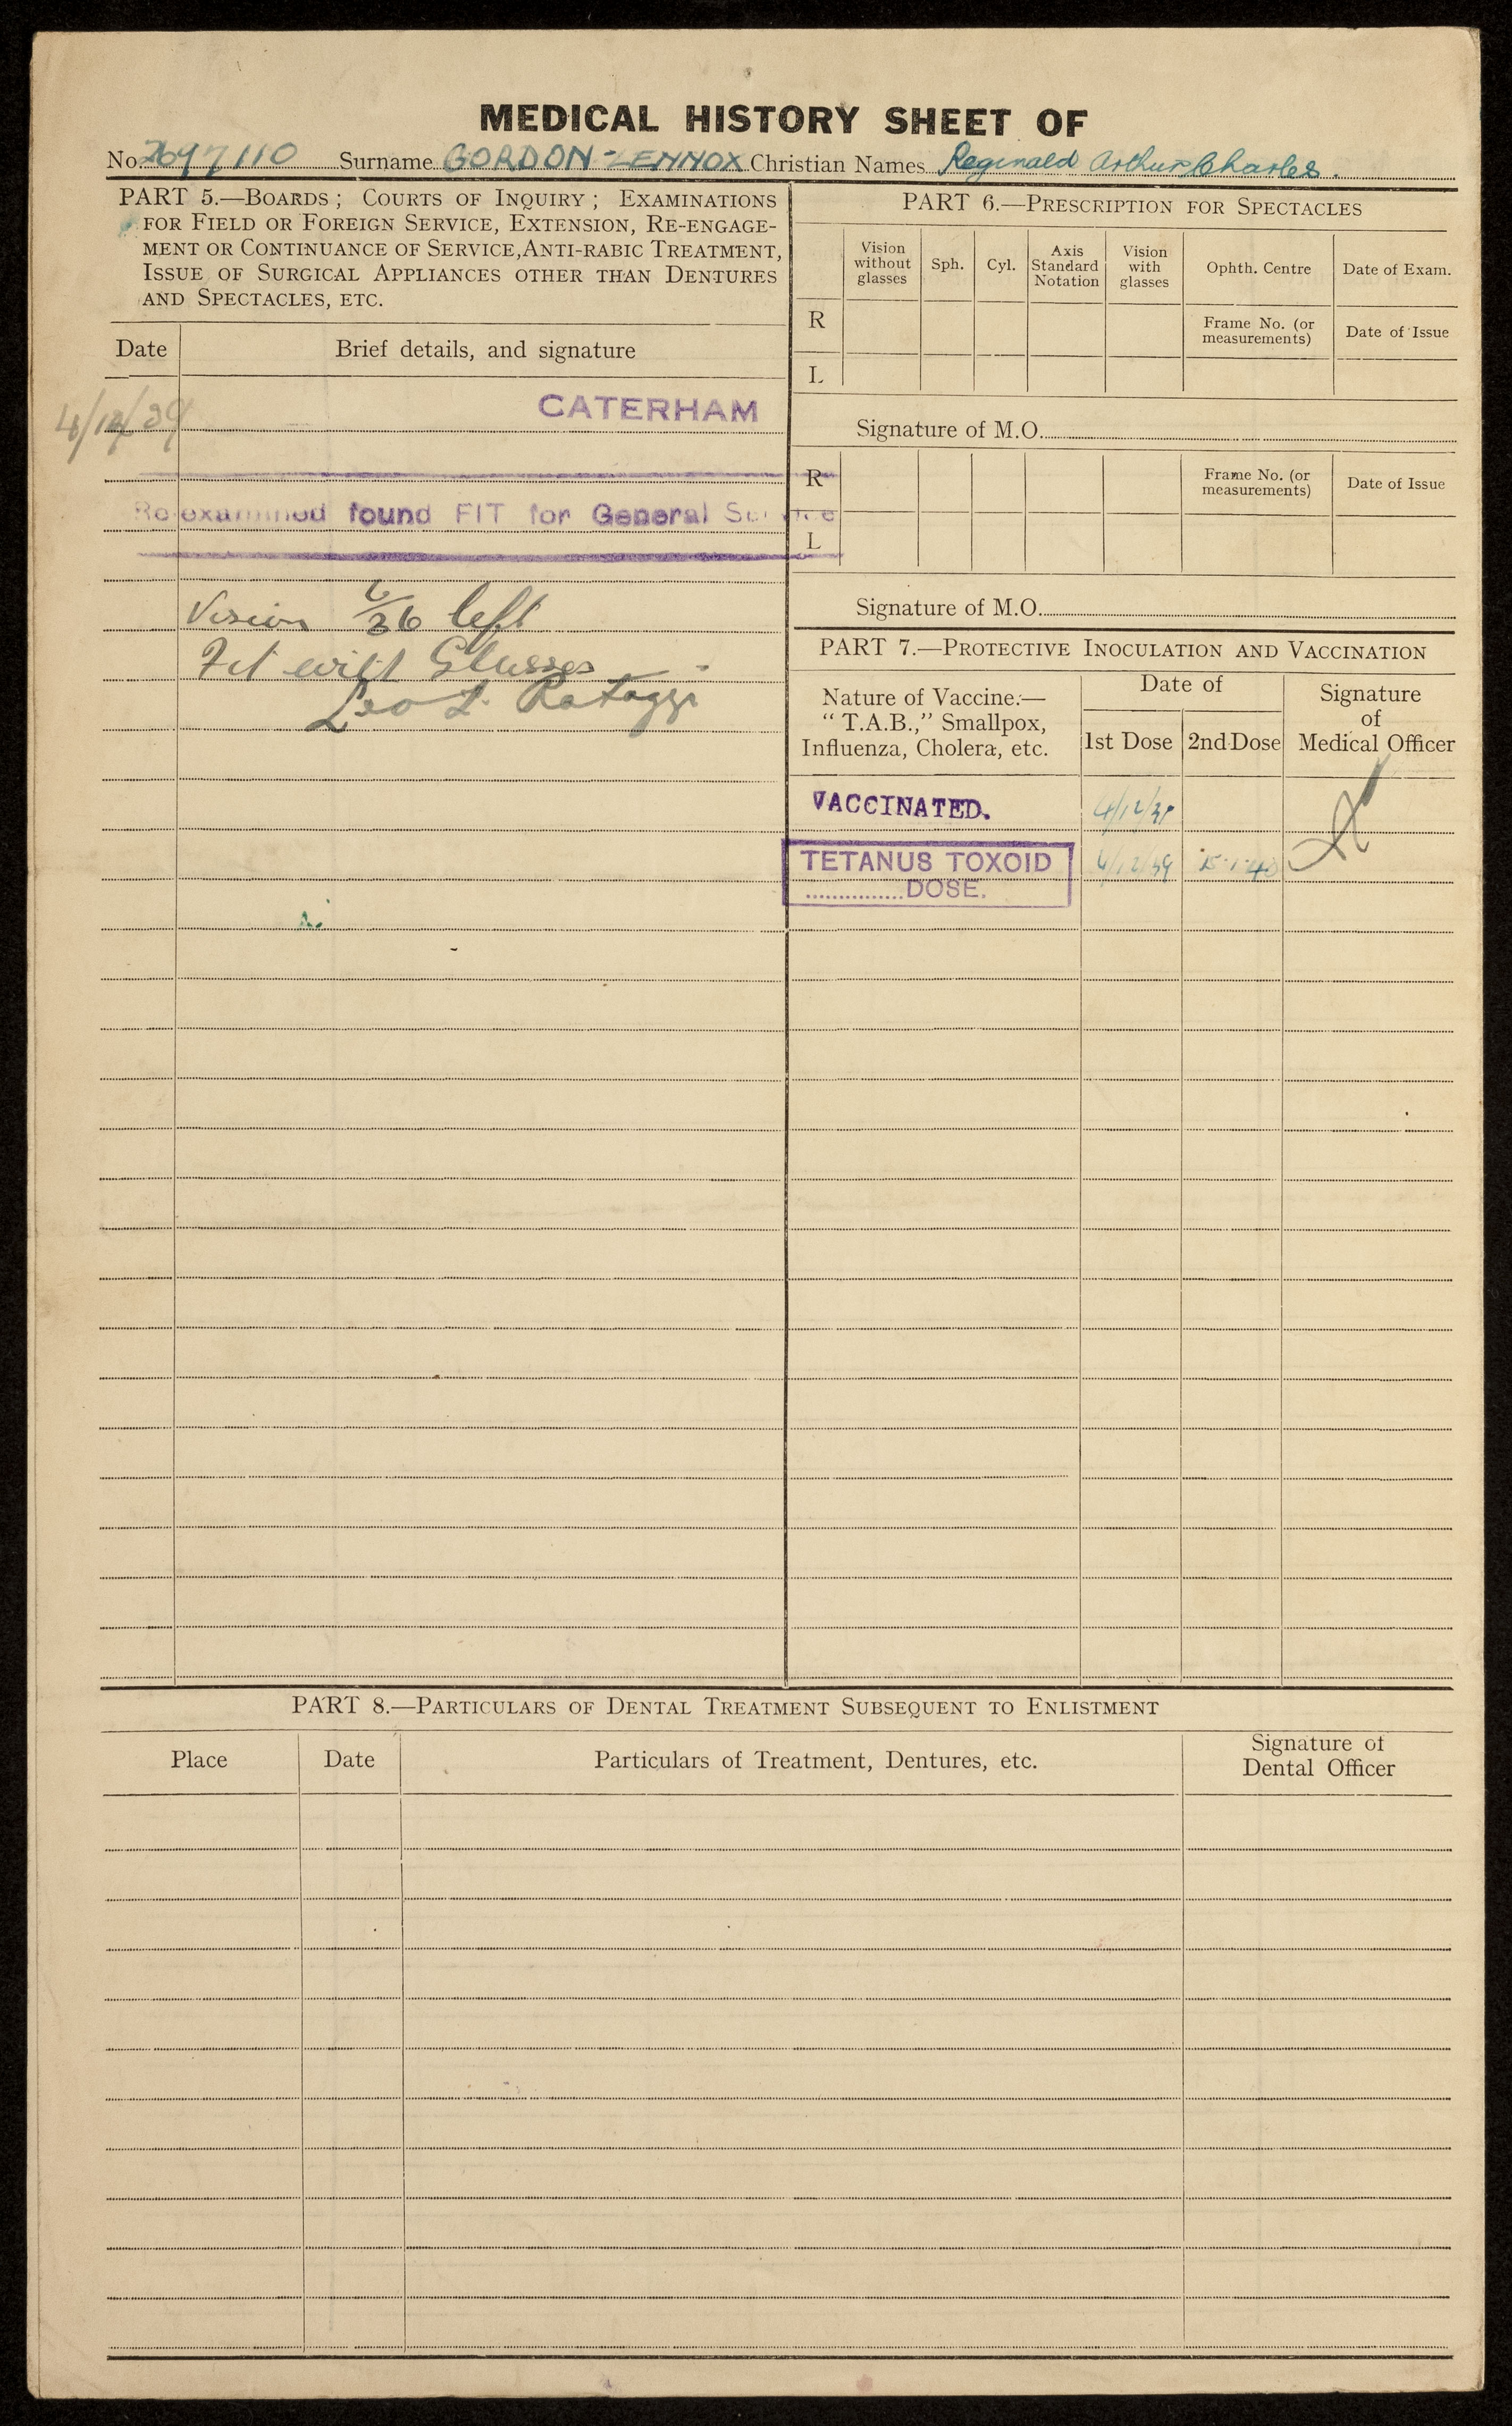 MEDICAL HISTORY SHEET OF
No. 2697110 Surname GORDON-LENNOX Christian Names Reginald Arthur Charles.
PART 5.—BOARDS; COURTS OF INQUIRY; EXAMINATIONS
FOR FIELD OR FOREIGN SERVICE, EXTENSION, RE-ENGAGE-
MENT OR CONTINUANCE OF SERVICE, ANTI-RABIC TREATMENT,
ISSUE OF SURGICAL APPLIANCES OTHER THAN DENTURES
AND SPECTACLES, ETC.
Date Brief details, and signature
4/12/39 CATERHAM
Re-examined found FIT for General Service
Vision 6/36 left
Fit with Glasses
Leo L.
PART 6.—PRESCRIPTION FOR SPECTACLES
Vision without glasses Sph. Cyl. Axis Standard Notation Vision with glasses Ophth. Centre Date of Exam.
R Frame No. (or measurements) Date of Issue
L
Signature of M.O.
R Frame No. (or measurements) Date of Issue
L
Signature of M.O.
PART 7.—PROTECTIVE INOCULATION AND VACCINATION
Nature of Vaccine:— Date of Signature
“ T.A.B.,” Smallpox, of
Influenza, Cholera, etc. 1st Dose 2nd Dose Medical Officer
VACCINATED. 4/12/39
TETANUS TOXOID 4/12/39 15·1·40
DOSE.
PART 8.—PARTICULARS OF DENTAL TREATMENT SUBSEQUENT TO ENLISTMENT
Place Date Particulars of Treatment, Dentures, etc. Signature of Dental Officer